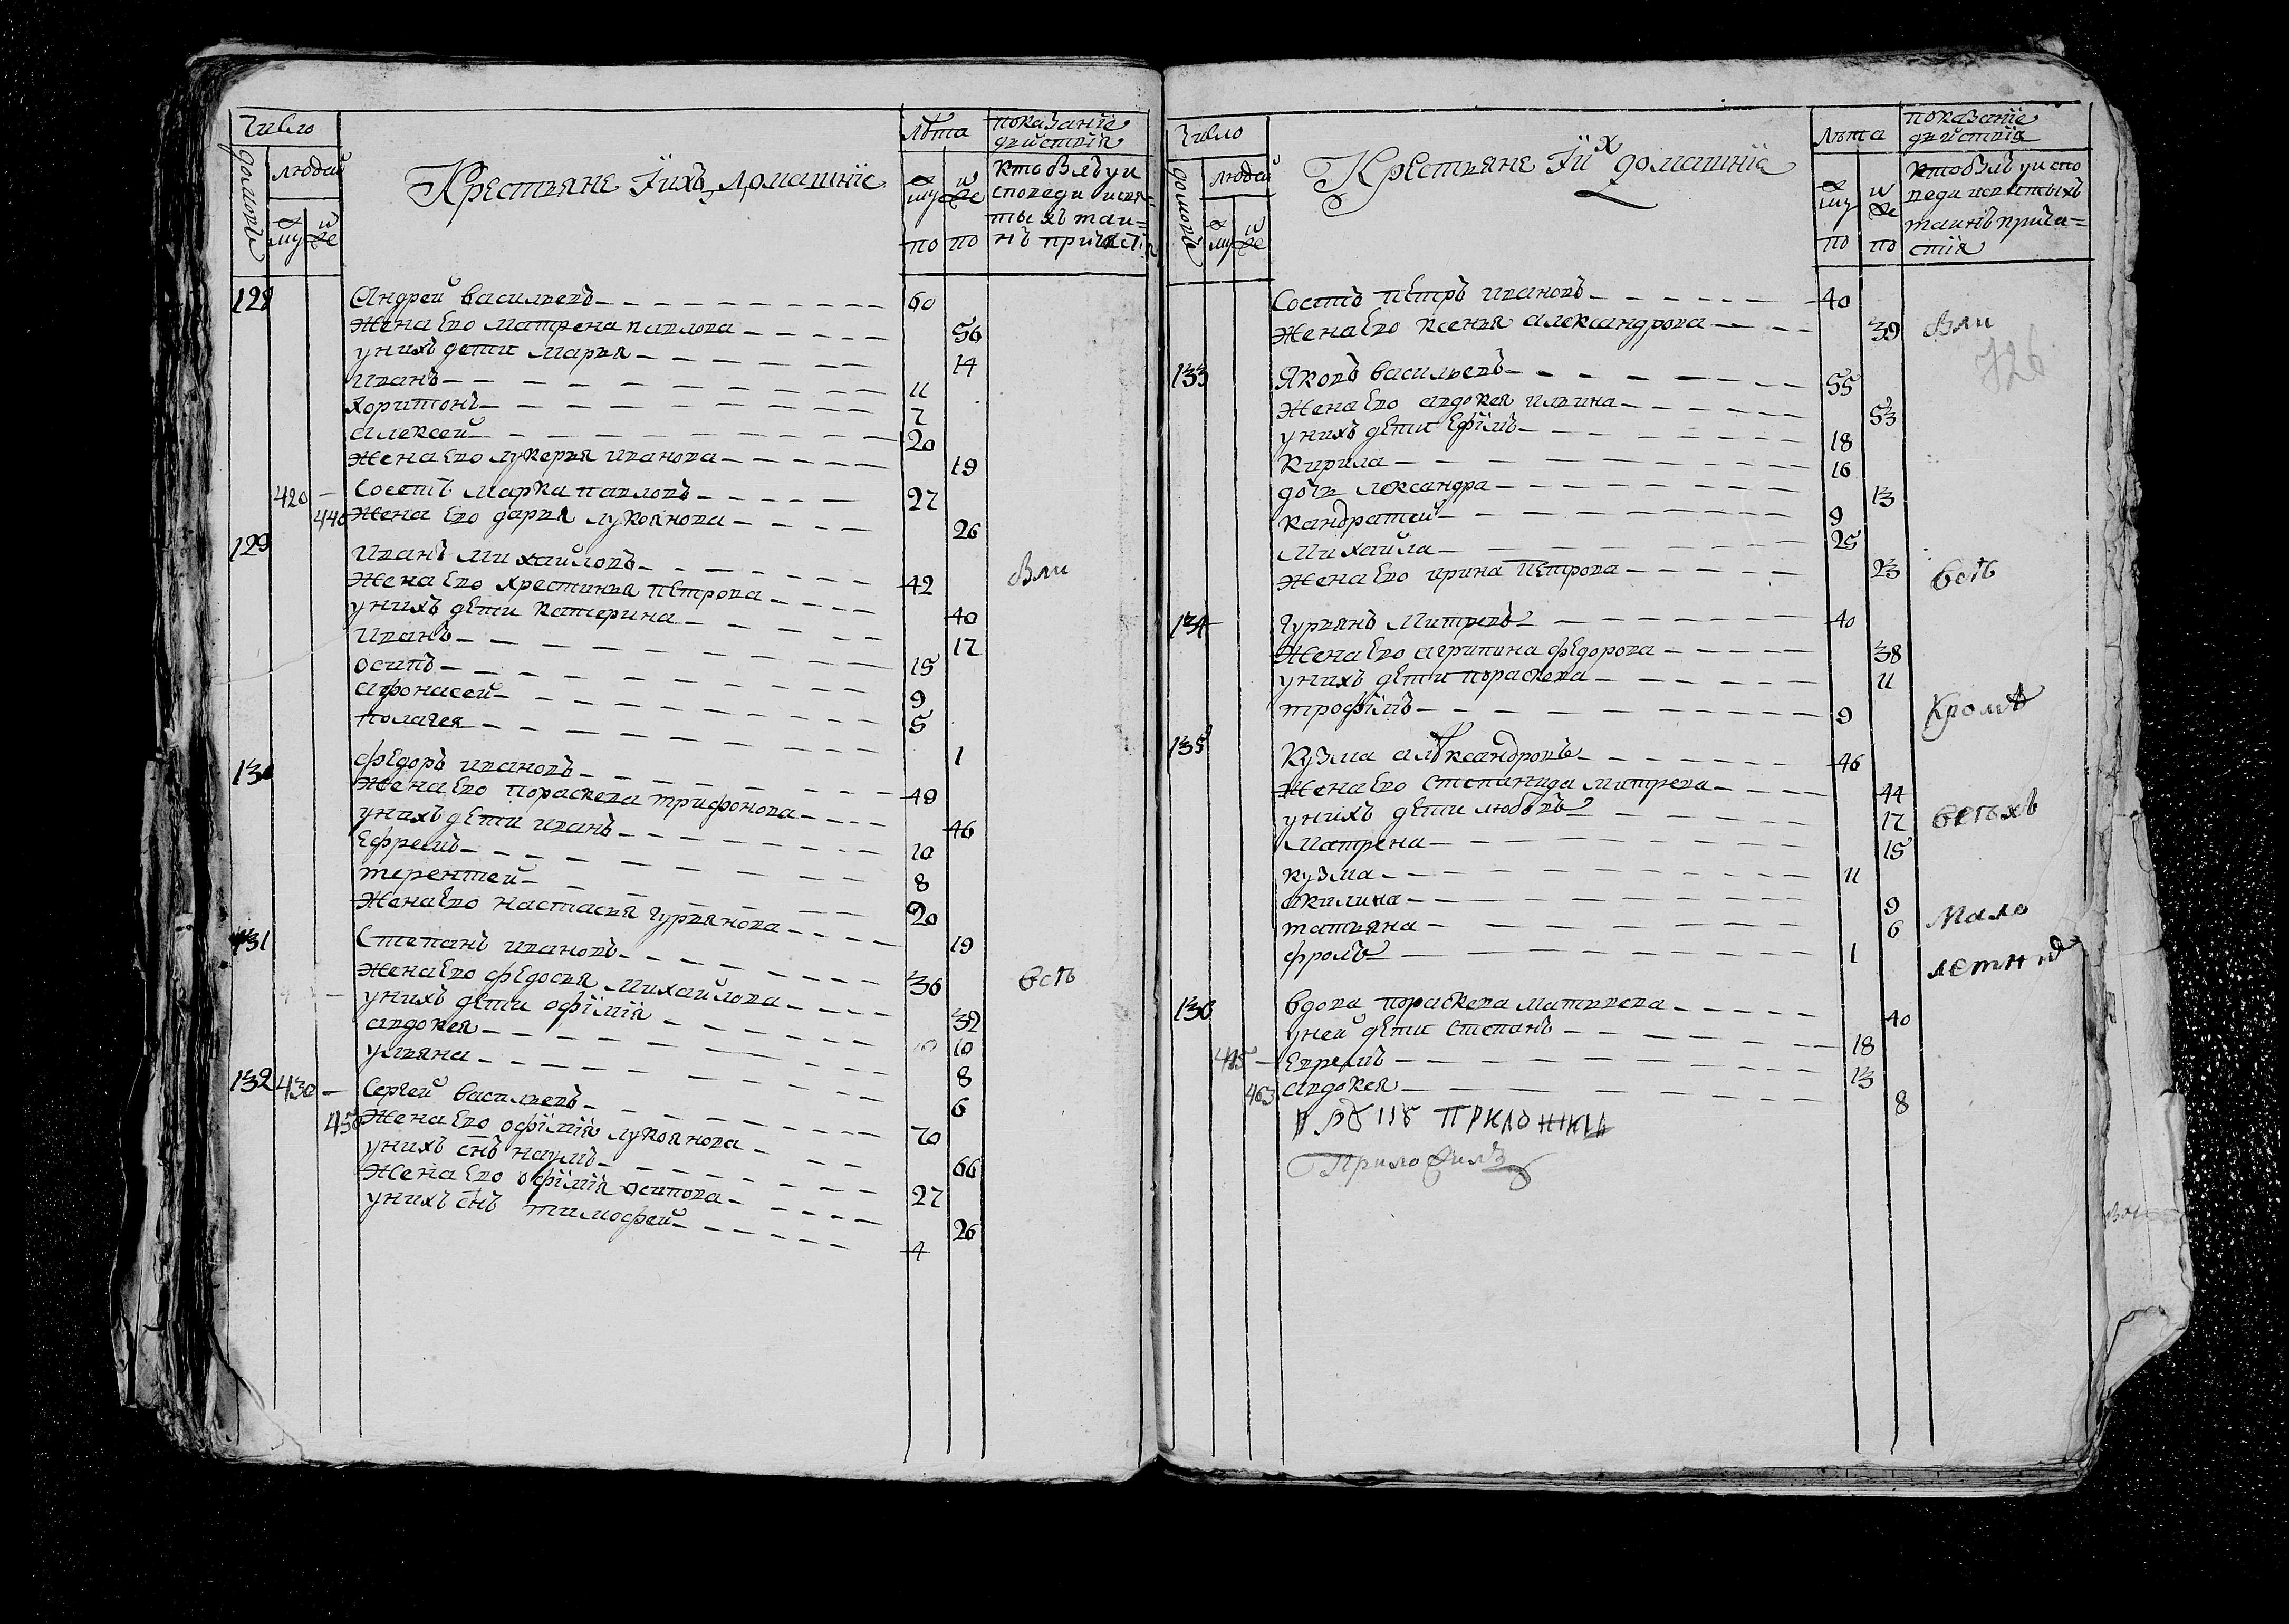 Число
домовъ
людей
му же
Крестьяне Їихъ домашнїе
лѣта
му же
по по
показанїе
дѣйствїя
кто былъ уи
споведи исвя-
тыхъ таи-
нъ причастїя
128 Андрей васильевъ 60
жена Ево матрена павлова 56
унихъ дети марья 14
иванъ 11
Харитонъ 7
алексей 20
жена Ево лукерья иванова 19
420 Состъ марка павловъ 27
440 жена Ево дарья лукоянова 26
129 иванъ михайловъ 42
жена Ево хрестинья пЕтрова 40
унихъ дЕти катерина 17
иванъ 15
осипъ 9
афонасей 5
полагея 1
130 фЕдоръ ивановъ 49
жена Ево пораскева трифонова 46
унихъ дЕти иванъ 10
Ефремъ 8
терентей 20
жена Ево настасья гурьянова 19
131 Степанъ ивановъ 36
жена Ево фЕдосья михайлова 32
унихъ дЕти офїмїя 10
авдокея 8
ульяна 6
132 430 Сергей васильевъ 70
450 жена Ево офїмїя лукоянова 66
унихъ снъ наумъ 27
жена Ево офїмїя осипова 26
унихъ снъ тимофей 4
были
всѣ
Число
домовъ
людей
му же
Крестьяне Їих домашнїе
лѣта
му же
по по
показанїе
дѣйствїя
кто былъ уиспо
веди исвятыхъ
таинъ прича-
стїя
Состъ пЕтръ ивановъ 40
жена Ево ксенья александрова 39
были
726
133 Яковъ васильевъ 55
жена Ево авдокея ильина 53
унихъ дЕти Ефїмъ 18
кирила 16
дочь лександра 13
кандратей 9
михайла 25
жена Ево ирина пЕтрова 23
всѣ
134 гурьянъ митревъ 40
жена Ево агрипина фЕдорова 38
унихъ дЕти пораскева 11
трофїмъ 9
Кромѣ
135 Кузма алЕксандровъ 46
жена Ево степанида митрева 44
унихъ дЕти любовь 17
матрена 15
кузма 11
акилина 9
татьяна 6
фролъ 1
всѣхъ
мало
летнїх
136 вдова пораскева матвеева 40
уней дЕти степанъ 18
445 Ефремъ 13
463 авдокея 8
приложилъ